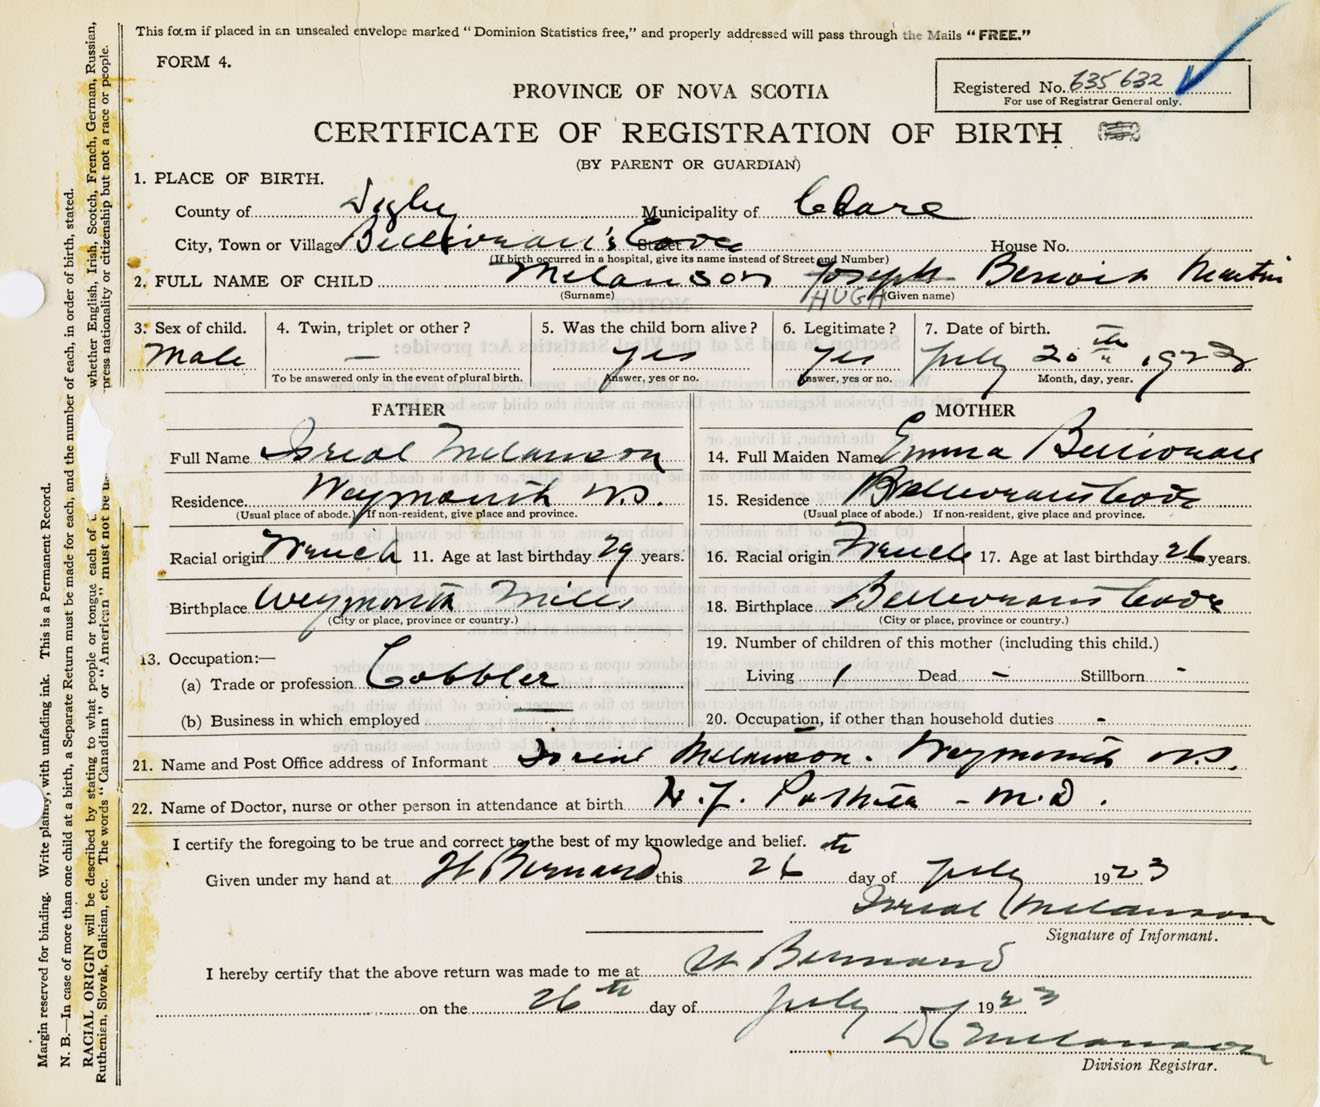 This form if placed in an unsealed envelope marked "Dominion Statistics free," and properly addressed will pass through the Mails "FREE."
FORM 4.
Registered No. 635632
For use of Registrar General only.
PROVINCE OF NOVA SCOTIA
CERTIFICATE OF REGISTRATION OF BIRTH
(BY PARENT OR GUARDIAN)
1. PLACE OF BIRTH.
County of Digby Municipality of Clare
City, Town or Village Belliveau's Cove Street House No.
(If birth occurred in a hospital, give its name instead of Street and Number)
2. FULL NAME OF CHILD Melanson Joseph Benoit Martin
(Surname) HUGH (Given name)
3. Sex of child. 4. Twin, triplet or other? 5. Was the child born alive? 6. Legitimate? 7. Date of birth.
Male — yes yes July 20th 1923
To be answered only in the event of plural birth. Answer, yes or no. Answer, yes or no. Month, day, year.
FATHER
Full Name Isreal Melanson
Residence Weymouth N.S.
(Usual place of abode.) If non-resident, give place and province.
Racial origin French 11. Age at last birthday 29 years.
Birthplace Weymouth Mills
(City or place, province or country.)
13. Occupation:—
(a) Trade or profession Cobbler
(b) Business in which employed —
MOTHER
14. Full Maiden Name Emma Belliveau
15. Residence Belliveaus Cove
(Usual place of abode.) If non-resident, give place and province.
16. Racial origin French 17. Age at last birthday 26 years.
18. Birthplace Belliveaus Cove
(City or place, province or country.)
19. Number of children of this mother (including this child.)
Living 1 Dead - Stillborn -
20. Occupation, if other than household duties -
21. Name and Post Office address of Informant Isreal Melanson. Weymouth N.S.
22. Name of Doctor, nurse or other person in attendance at birth H. J. - M.D.
I certify the foregoing to be true and correct to the best of my knowledge and belief.
Given under my hand at St Bernard this 26th day of July 1923
Isreal Melanson
Signature of Informant.
I hereby certify that the above return was made to me at St Bernard
on the 26th day of July 1923
Melanson
Division Registrar.
Margin reserved for binding. Write plainly, with unfading ink. This is a Permanent Record.
N. B.—In case of more than one child at a birth, a Separate Return must be made for each, and the number of each, in order of birth, stated.
RACIAL ORIGIN will be described by stating to what people or tongue each of whether English, Irish, Scotch, French, German, Russian,
Ruthenian, Slovak, Galician, etc. The words "Canadian" or "American" must not be press nationality or citizenship but not a race or people.